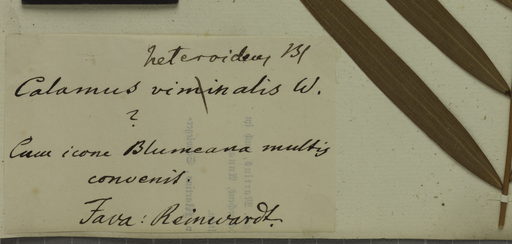 heteroideus Bl
Calamus viminalis W.
?
Cum icone Blumeana multis
convenit
Java: Reinwardt.